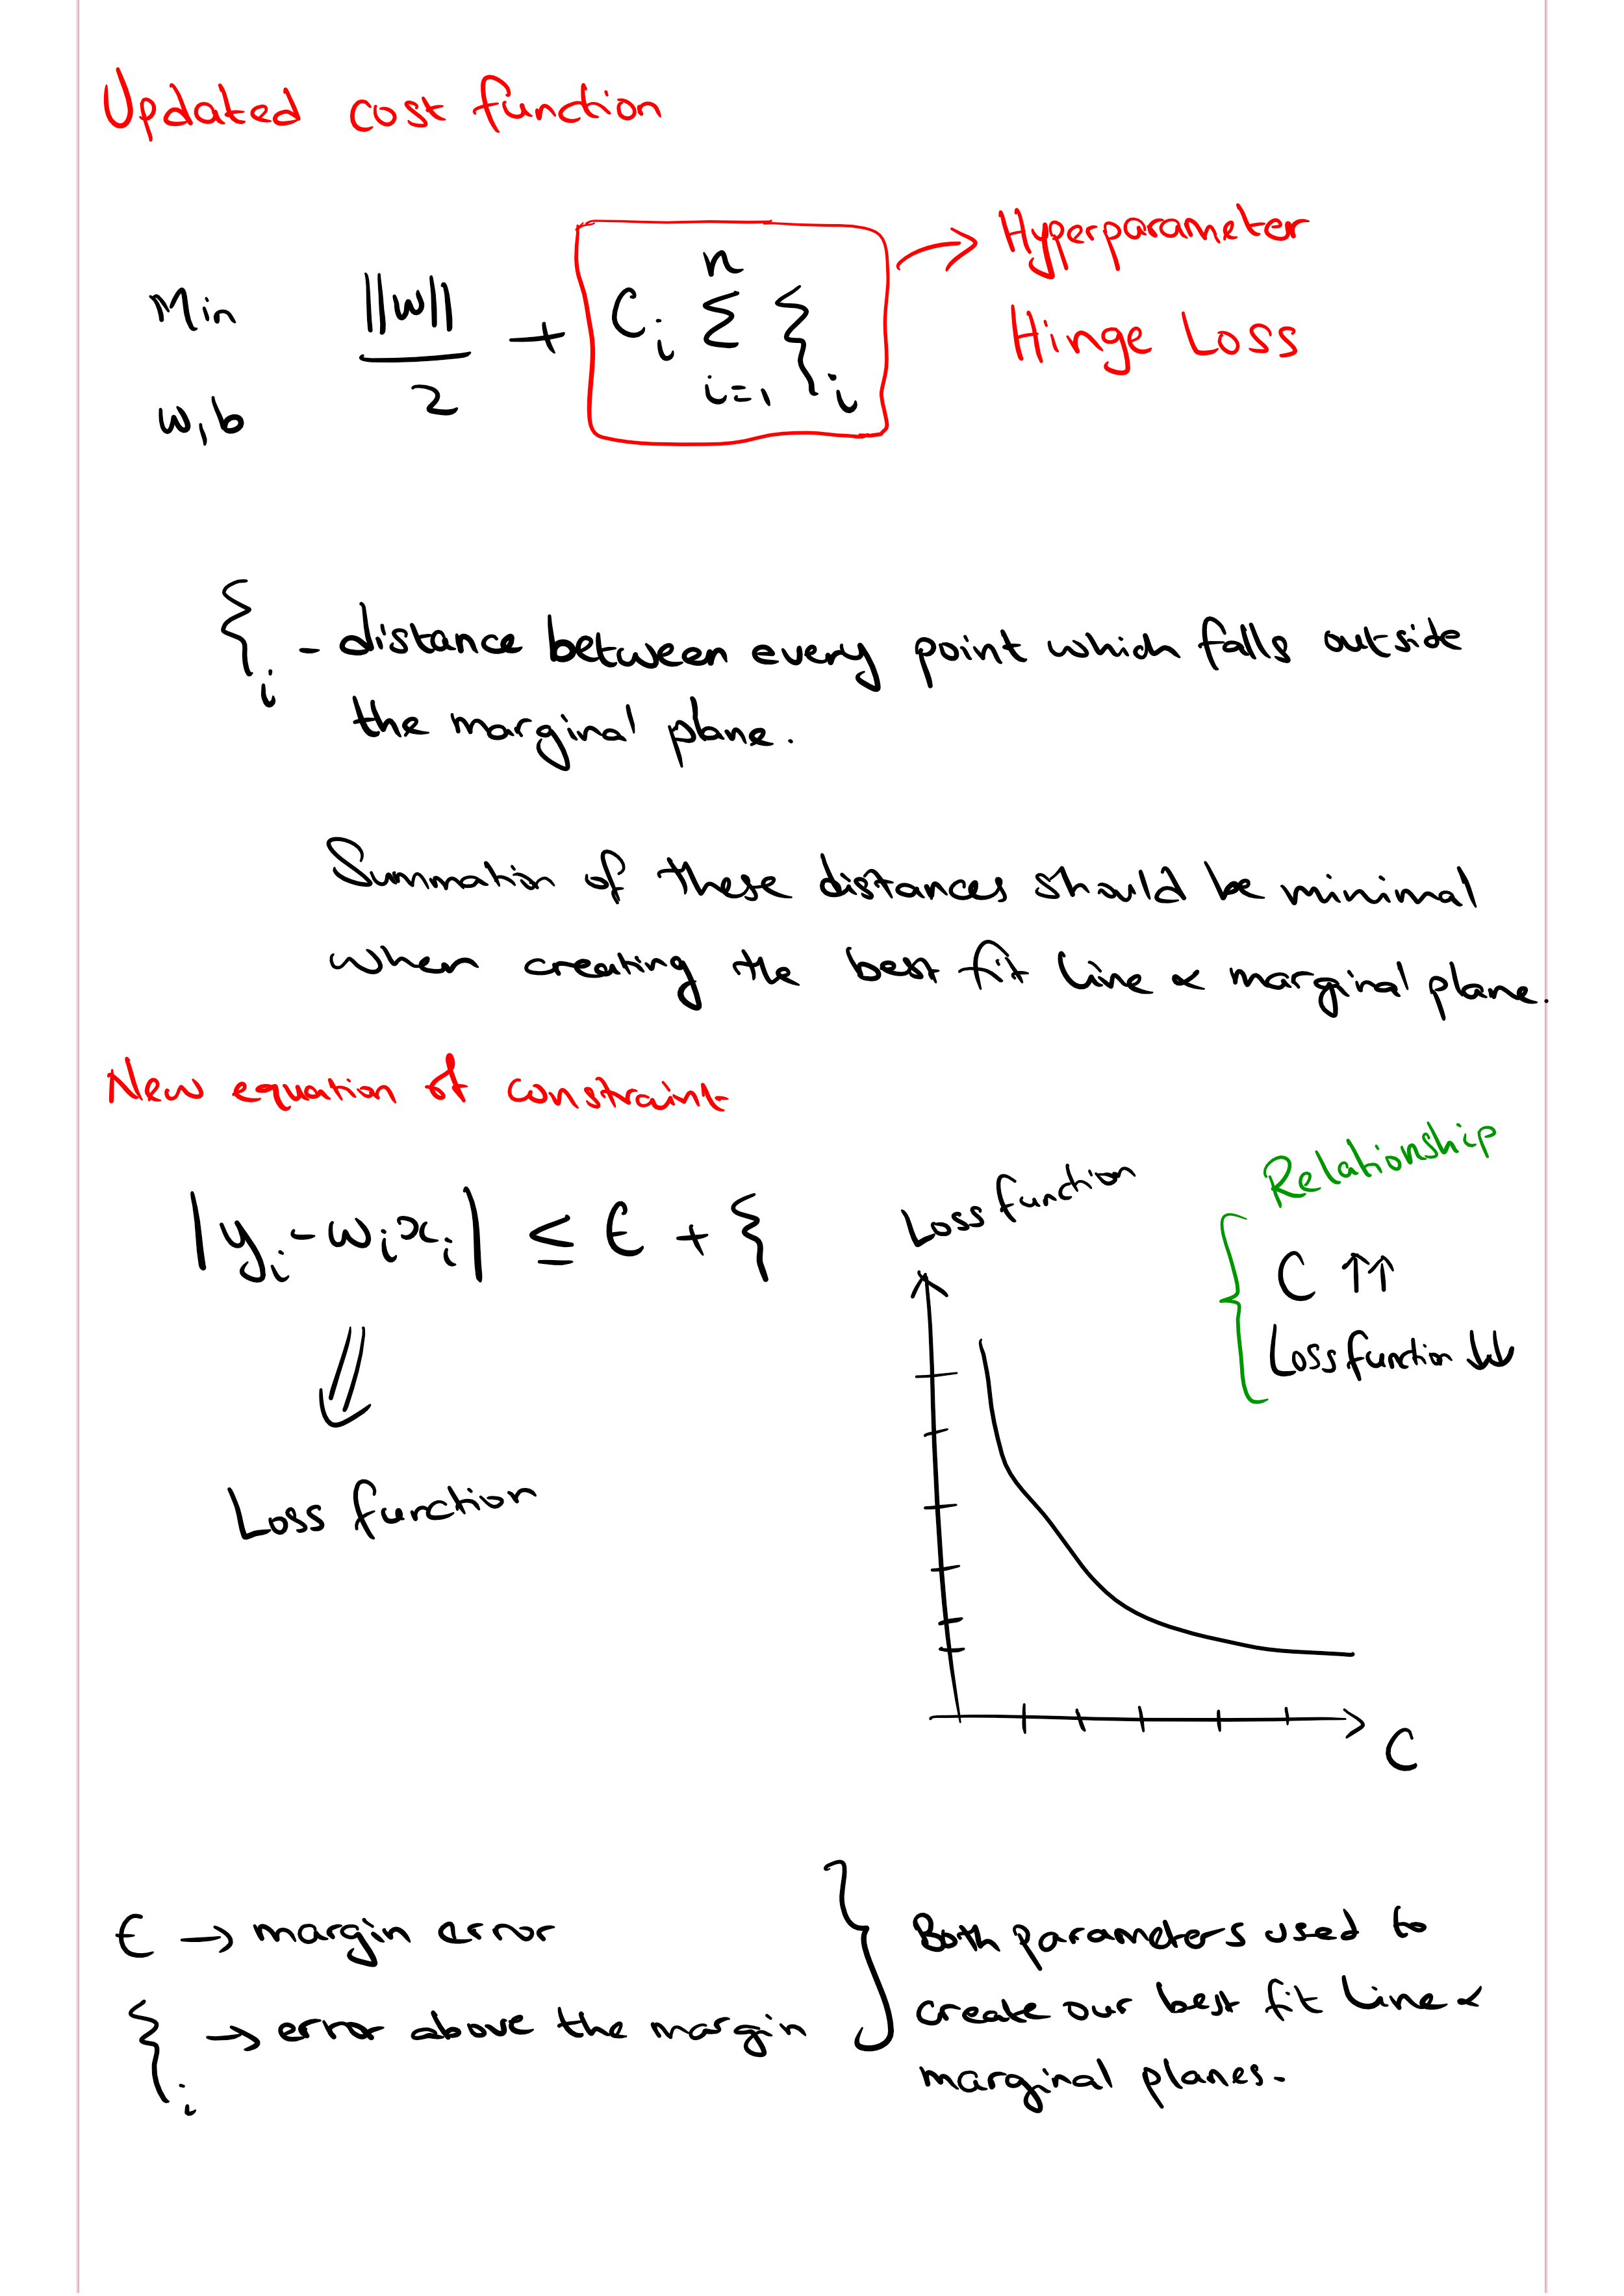 Updated cost function
Min w,b ||w||/2 + C_i Σ_{i=1}^{n} ξ_i
Hyperparameter
Hinge Loss
ξ_i - distance between every point which falls outside
the marginal plane.
Summation of these distances should be minimal
when creating the best fit line & marginal plane.
New equation of constraint
|y_i - w_i x_i| ≤ ε + ξ
Loss function
Loss function
C
Relationship
C ↑↑
Loss function ↓↓
ε → margin error
ξ_i → error above the margin
Both parameters used to
create our best fit line &
marginal planes.